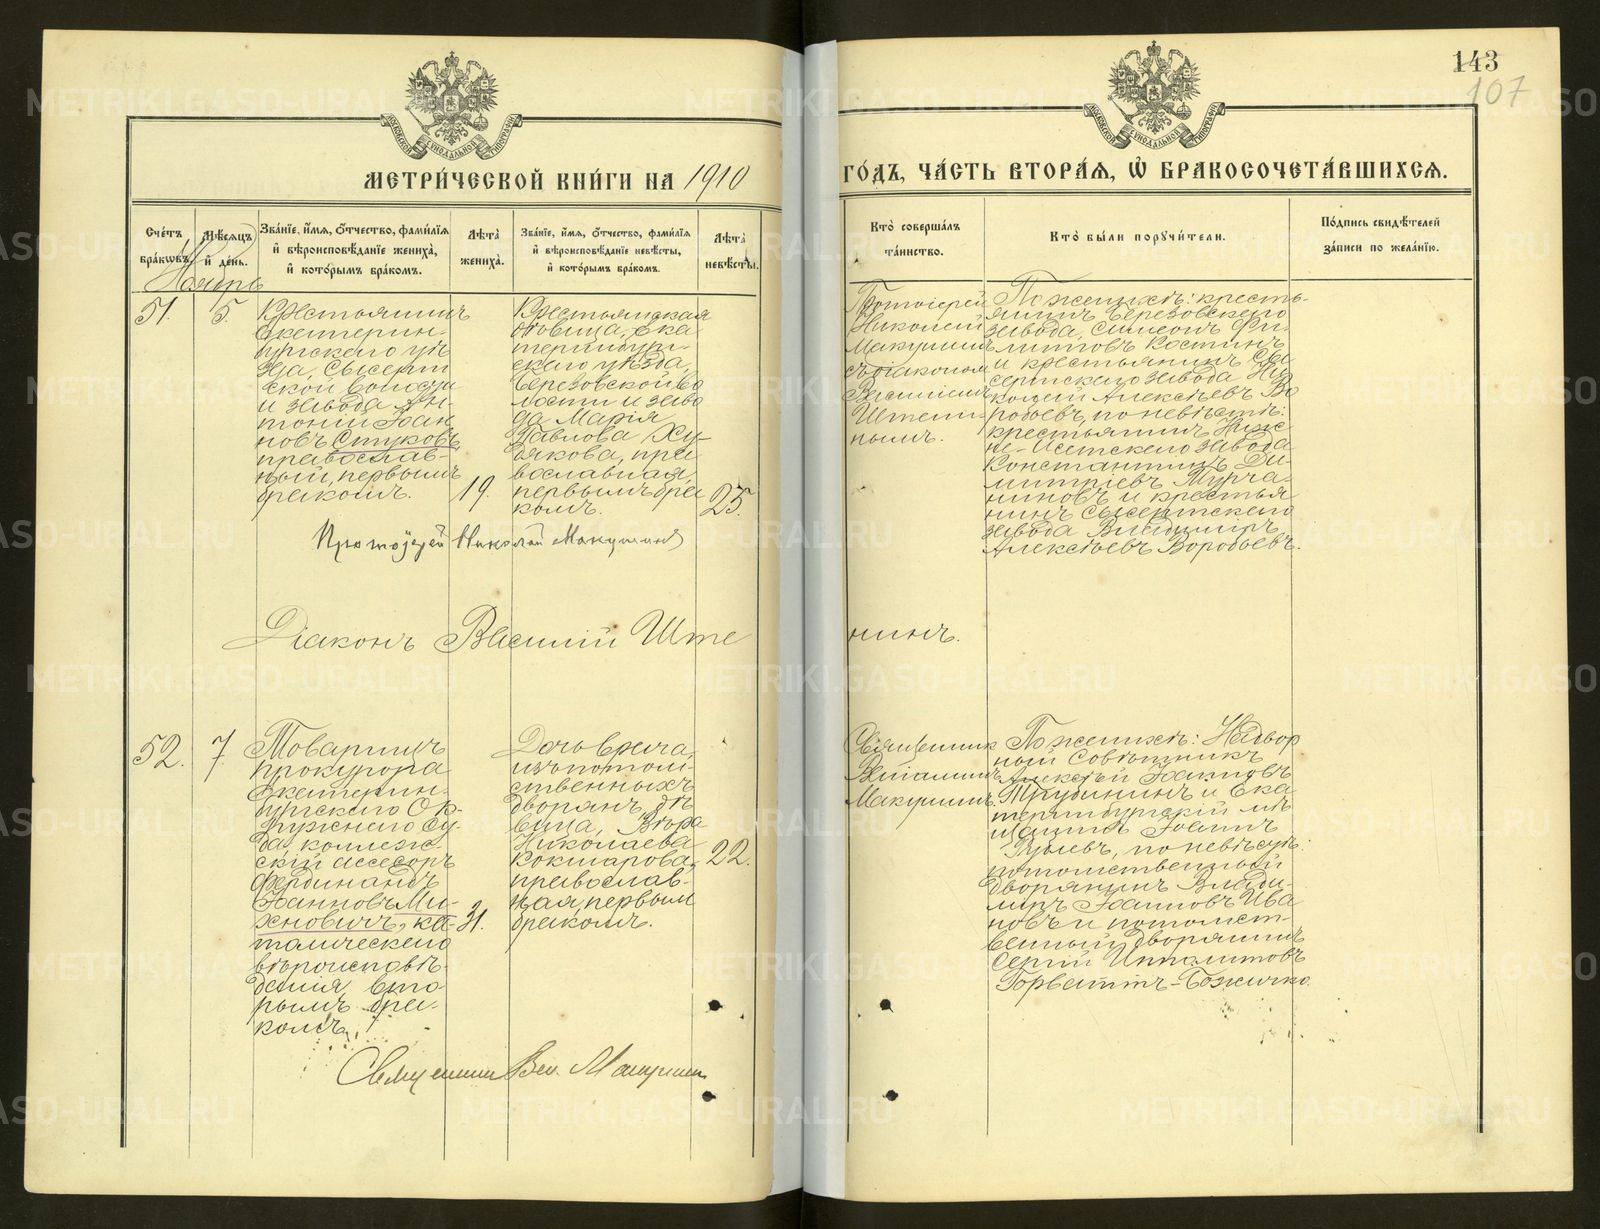 143
107
МЕТРИ́ЧЕСКОЙ КНИ́ГИ НА 1910
ГО́ДЪ, ЧА́СТЬ ВТОРА́Я, Ѡ БРАКОСОЧЕТА́ВШИХСЯ.
Сче́тъ бра́кѡвъ.
Мѣ́сяцъ и де́нь.
Зва́нїе, и́мя, о́тчество, фами́лїя и вѣроисповѣ́данїе жениха̀, и кото́рымъ бра́комъ.
Лѣта̀ жениха̀.
Зва́нїе, и́мя, о́тчество, фами́лїя и вѣроисповѣ́данїе невѣ́сты, и кото́рымъ бра́комъ.
Лѣта̀ невѣ́сты.
Кто̀ соверша́лъ та́инство.
Кто̀ бы́ли поручи́тели.
По́дпись свидѣ́телей за́писи по жела́нїю.
Ноябрь
51.
5.
Крестьянинъ
Екатерин-
бургскаго уѣ
зда, Сысерт
ской волости
и завода Ан-
тоній Іоан
новъ Стуковъ
православ-
ный, первымъ
бракомъ.
19.
Крестьянская
дѣвица, Ека
теринбург-
скаго уѣзда,
Березовской во
лости и заво
да Марія
Павлова Ху-
дякова, пра
вославная,
первымъ бра
комъ.
25.
Протоіерей
Николай
Макушинъ
съ діакономъ
Василіемъ
Штени-
нымъ.
По женихѣ: кресть-
янинъ Березовскаго
завода, Симеонъ Фи-
липповъ Костинъ
и крестьянинъ Сы
сертскаго завода Ни
колай Алексѣевъ Во
робьевъ, по невѣстѣ:
крестьянинъ Ниж
не-Исетскаго завода
Константинъ Ди-
митріевъ Мурча-
ниновъ и крестья
нинъ Сысертскаго
завода Владиміръ
Алексѣевъ Воробьевъ.
Протоіерей Николай Макушинъ
Діаконъ Василій Ште
нинъ.
52.
7.
Товарищъ
прокурора
Екатерин-
бургскаго Ок-
ружнаго Су-
да, коллеж-
скій ассесоръ
Фердинандъ
Іоанновъ Ми-
хновичъ, ка-
толическаго
вѣроисповѣ-
данія, вто-
рымъ бра-
комъ.
31.
Дочь врача,
изъ потом-
ственныхъ
дворянъ, дѣ
вица, Вѣра
Николаева
Кокшарова,
православ-
ная, первымъ
бракомъ.
22.
Священникъ
Веніаминъ
Макушинъ.
По женихѣ: Надвор
ный Совѣтникъ
Алексѣй Іоанновъ
Трубининъ и Ека
теринбургскій мѣ
щанинъ Іоаннъ
по невѣстѣ:
потомственный
дворянинъ Влади-
міръ Іоанновъ Ива
новъ и потомст-
венный дворянинъ
Сергій Ипполитовъ
Горватъ-Божичко.
Священникъ Вен. Макушинъ